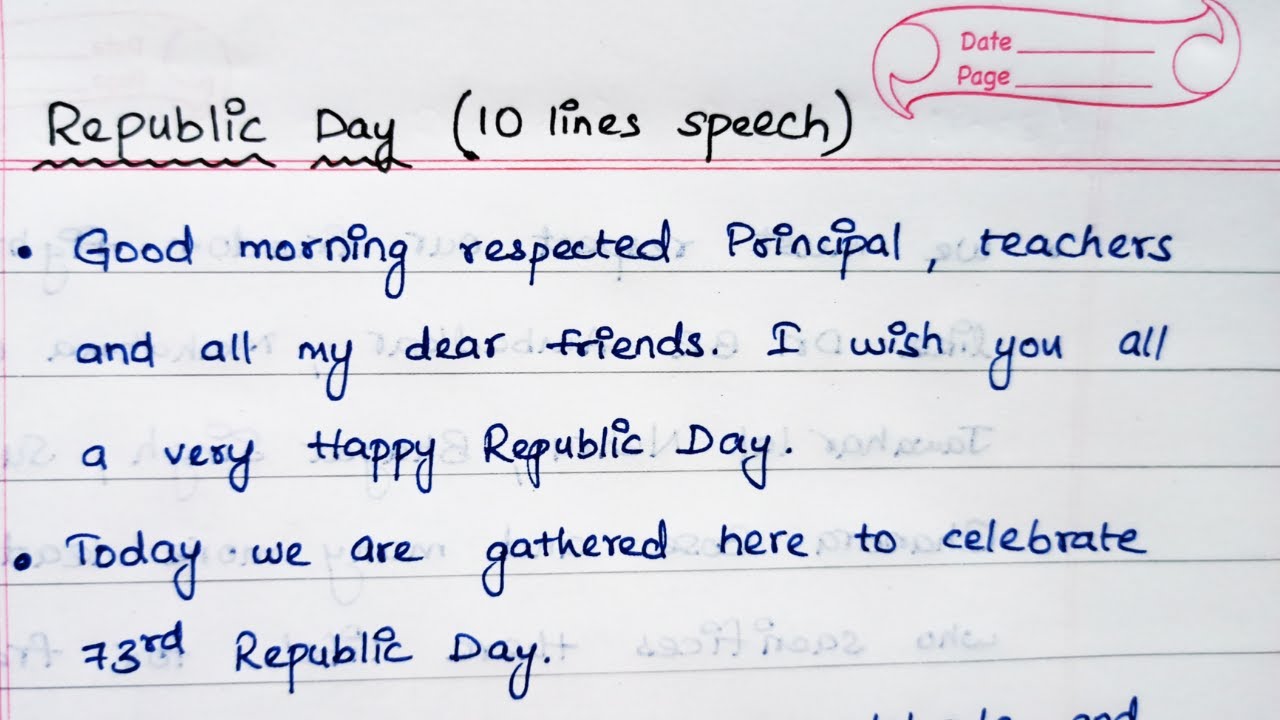 Date
Page
Republic Day (10 lines speech)
• Good morning respected Principal, teachers
and all my dear friends. I wish you all
a very Happy Republic Day.
• Today we are gathered here to celebrate
73rd Republic Day.
and